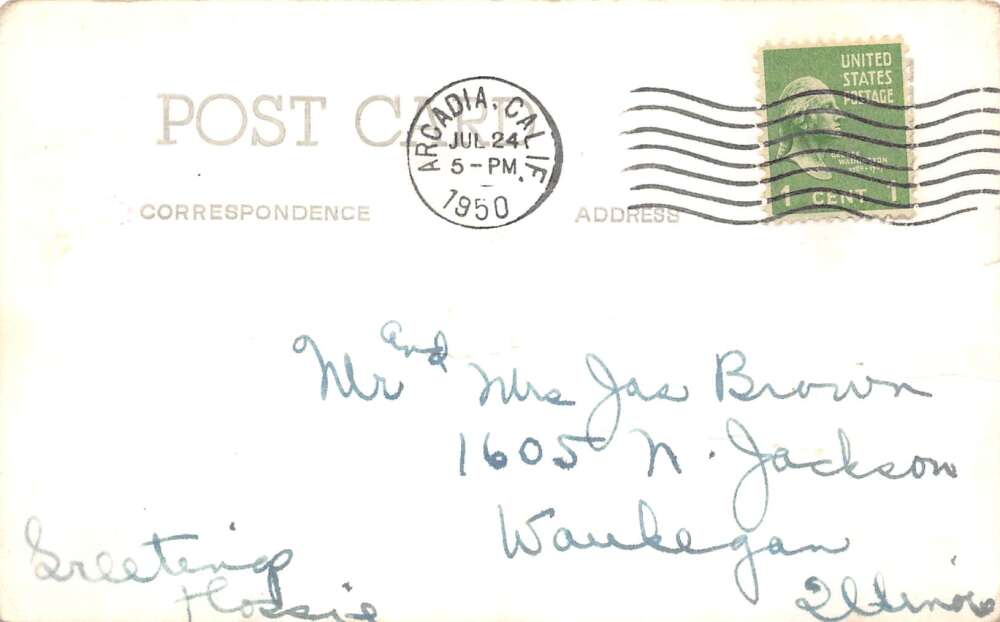 POST CARD
ARCADIA, CALIF.
JUL 24
5-PM
1950
UNITED
STATES
POSTAGE
GEORGE
WASHINGTON
1 CENT 1
CORRESPONDENCE
ADDRESS
Mr and Mrs Jas Brown
1605 N. Jackson
Waukegan
Illinois
Greetings
Flossie